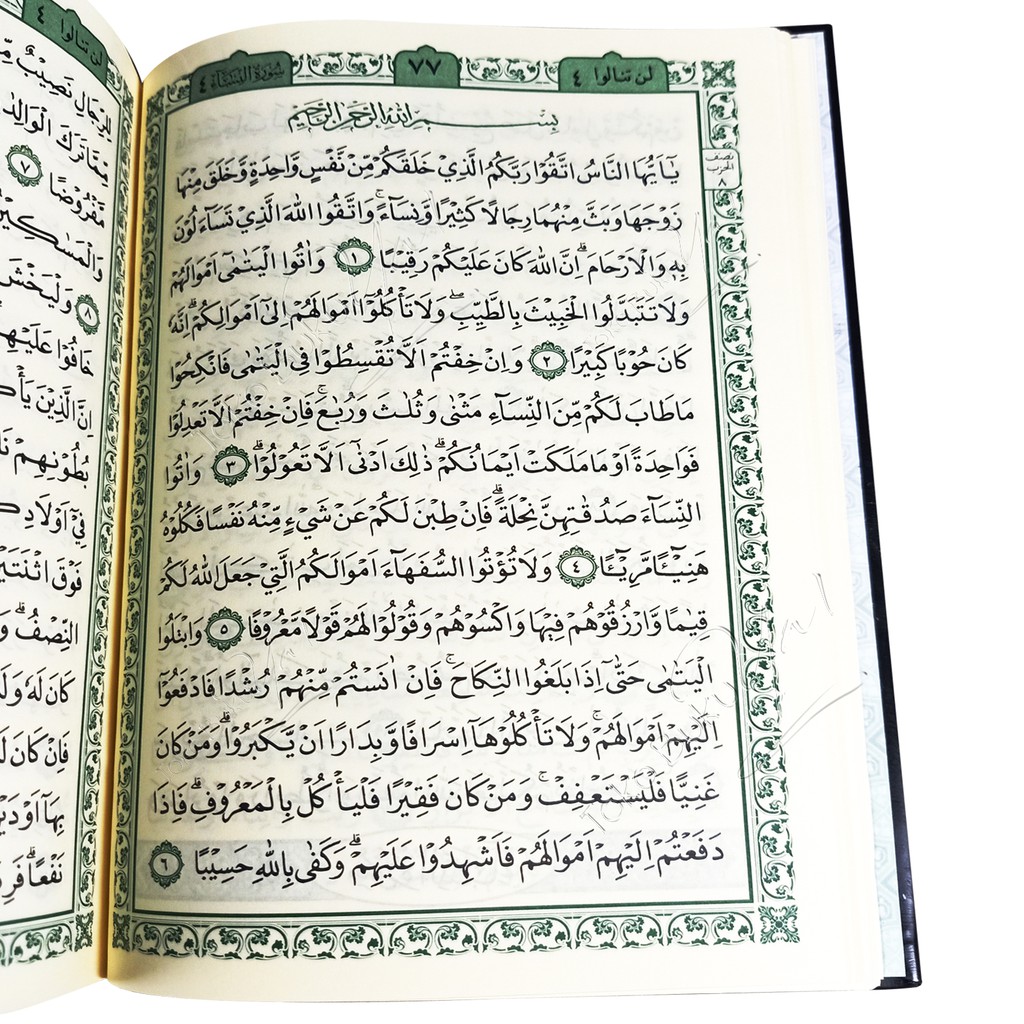 لن تنالوا ٤
٧٧
سورة النساء ٤
بِسْمِ اللّٰهِ الرَّحْمٰنِ الرَّحِيْمِ
نصف
الحزب
٨
يٰٓاَيُّهَا النَّاسُ اتَّقُوْا رَبَّكُمُ الَّذِيْ خَلَقَكُمْ مِّنْ نَّفْسٍ وَّاحِدَةٍ وَّخَلَقَ مِنْهَا
زَوْجَهَا وَبَثَّ مِنْهُمَا رِجَالًا كَثِيْرًا وَّنِسَاۤءً ۚ وَاتَّقُوا اللّٰهَ الَّذِيْ تَسَاۤءَلُوْنَ
بِهٖ وَالْاَرْحَامَ ۗ اِنَّ اللّٰهَ كَانَ عَلَيْكُمْ رَقِيْبًا ١ وَاٰتُوا الْيَتٰمٰٓى اَمْوَالَهُمْ
وَلَا تَتَبَدَّلُوا الْخَبِيْثَ بِالطَّيِّبِ ۖ وَلَا تَأْكُلُوْٓا اَمْوَالَهُمْ اِلٰٓى اَمْوَالِكُمْ ۗ اِنَّهٗ
كَانَ حُوْبًا كَبِيْرًا ٢ وَاِنْ خِفْتُمْ اَلَّا تُقْسِطُوْا فِى الْيَتٰمٰى فَانْكِحُوْا
مَا طَابَ لَكُمْ مِّنَ النِّسَاۤءِ مَثْنٰى وَثُلٰثَ وَرُبٰعَ ۚ فَاِنْ خِفْتُمْ اَلَّا تَعْدِلُوْا
فَوَاحِدَةً اَوْ مَا مَلَكَتْ اَيْمَانُكُمْ ۗ ذٰلِكَ اَدْنٰٓى اَلَّا تَعُوْلُوْا ۗ ٣ وَاٰتُوا
النِّسَاۤءَ صَدُقٰتِهِنَّ نِحْلَةً ۗ فَاِنْ طِبْنَ لَكُمْ عَنْ شَيْءٍ مِّنْهُ نَفْسًا فَكُلُوْهُ
هَنِيْۤـًٔا مَّرِيْۤـًٔا ٤ وَلَا تُؤْتُوا السُّفَهَاۤءَ اَمْوَالَكُمُ الَّتِيْ جَعَلَ اللّٰهُ لَكُمْ
قِيٰمًا وَّارْزُقُوْهُمْ فِيْهَا وَاكْسُوْهُمْ وَقُوْلُوْا لَهُمْ قَوْلًا مَّعْرُوْفًا ٥ وَابْتَلُوا
الْيَتٰمٰى حَتّٰىٓ اِذَا بَلَغُوا النِّكَاحَ ۚ فَاِنْ اٰنَسْتُمْ مِّنْهُمْ رُشْدًا فَادْفَعُوْٓا
اِلَيْهِمْ اَمْوَالَهُمْ ۚ وَلَا تَأْكُلُوْهَآ اِسْرَافًا وَّبِدَارًا اَنْ يَّكْبَرُوْا ۗ وَمَنْ كَانَ
غَنِيًّا فَلْيَسْتَعْفِفْ ۚ وَمَنْ كَانَ فَقِيْرًا فَلْيَأْكُلْ بِالْمَعْرُوْفِ ۗ فَاِذَا
دَفَعْتُمْ اِلَيْهِمْ اَمْوَالَهُمْ فَاَشْهِدُوْا عَلَيْهِمْ ۗ وَكَفٰى بِاللّٰهِ حَسِيْبًا ٦
لن تنالوا ٤
لِلرِّجَالِ نَصِيْبٌ
مِّمَّا تَرَكَ
مَّفْرُوْضًا ٧
٨ وَلْيَخْشَ
خَافُوْا
اِنَّ الَّذِيْنَ
بُطُوْنِهِمْ
فِيْٓ
فَوْقَ
النِّصْفُ ۗ
كَانَ لَهٗ
فَاِنْ كَانَ
بِهَآ اَوْ
نَفْعًا ۗ